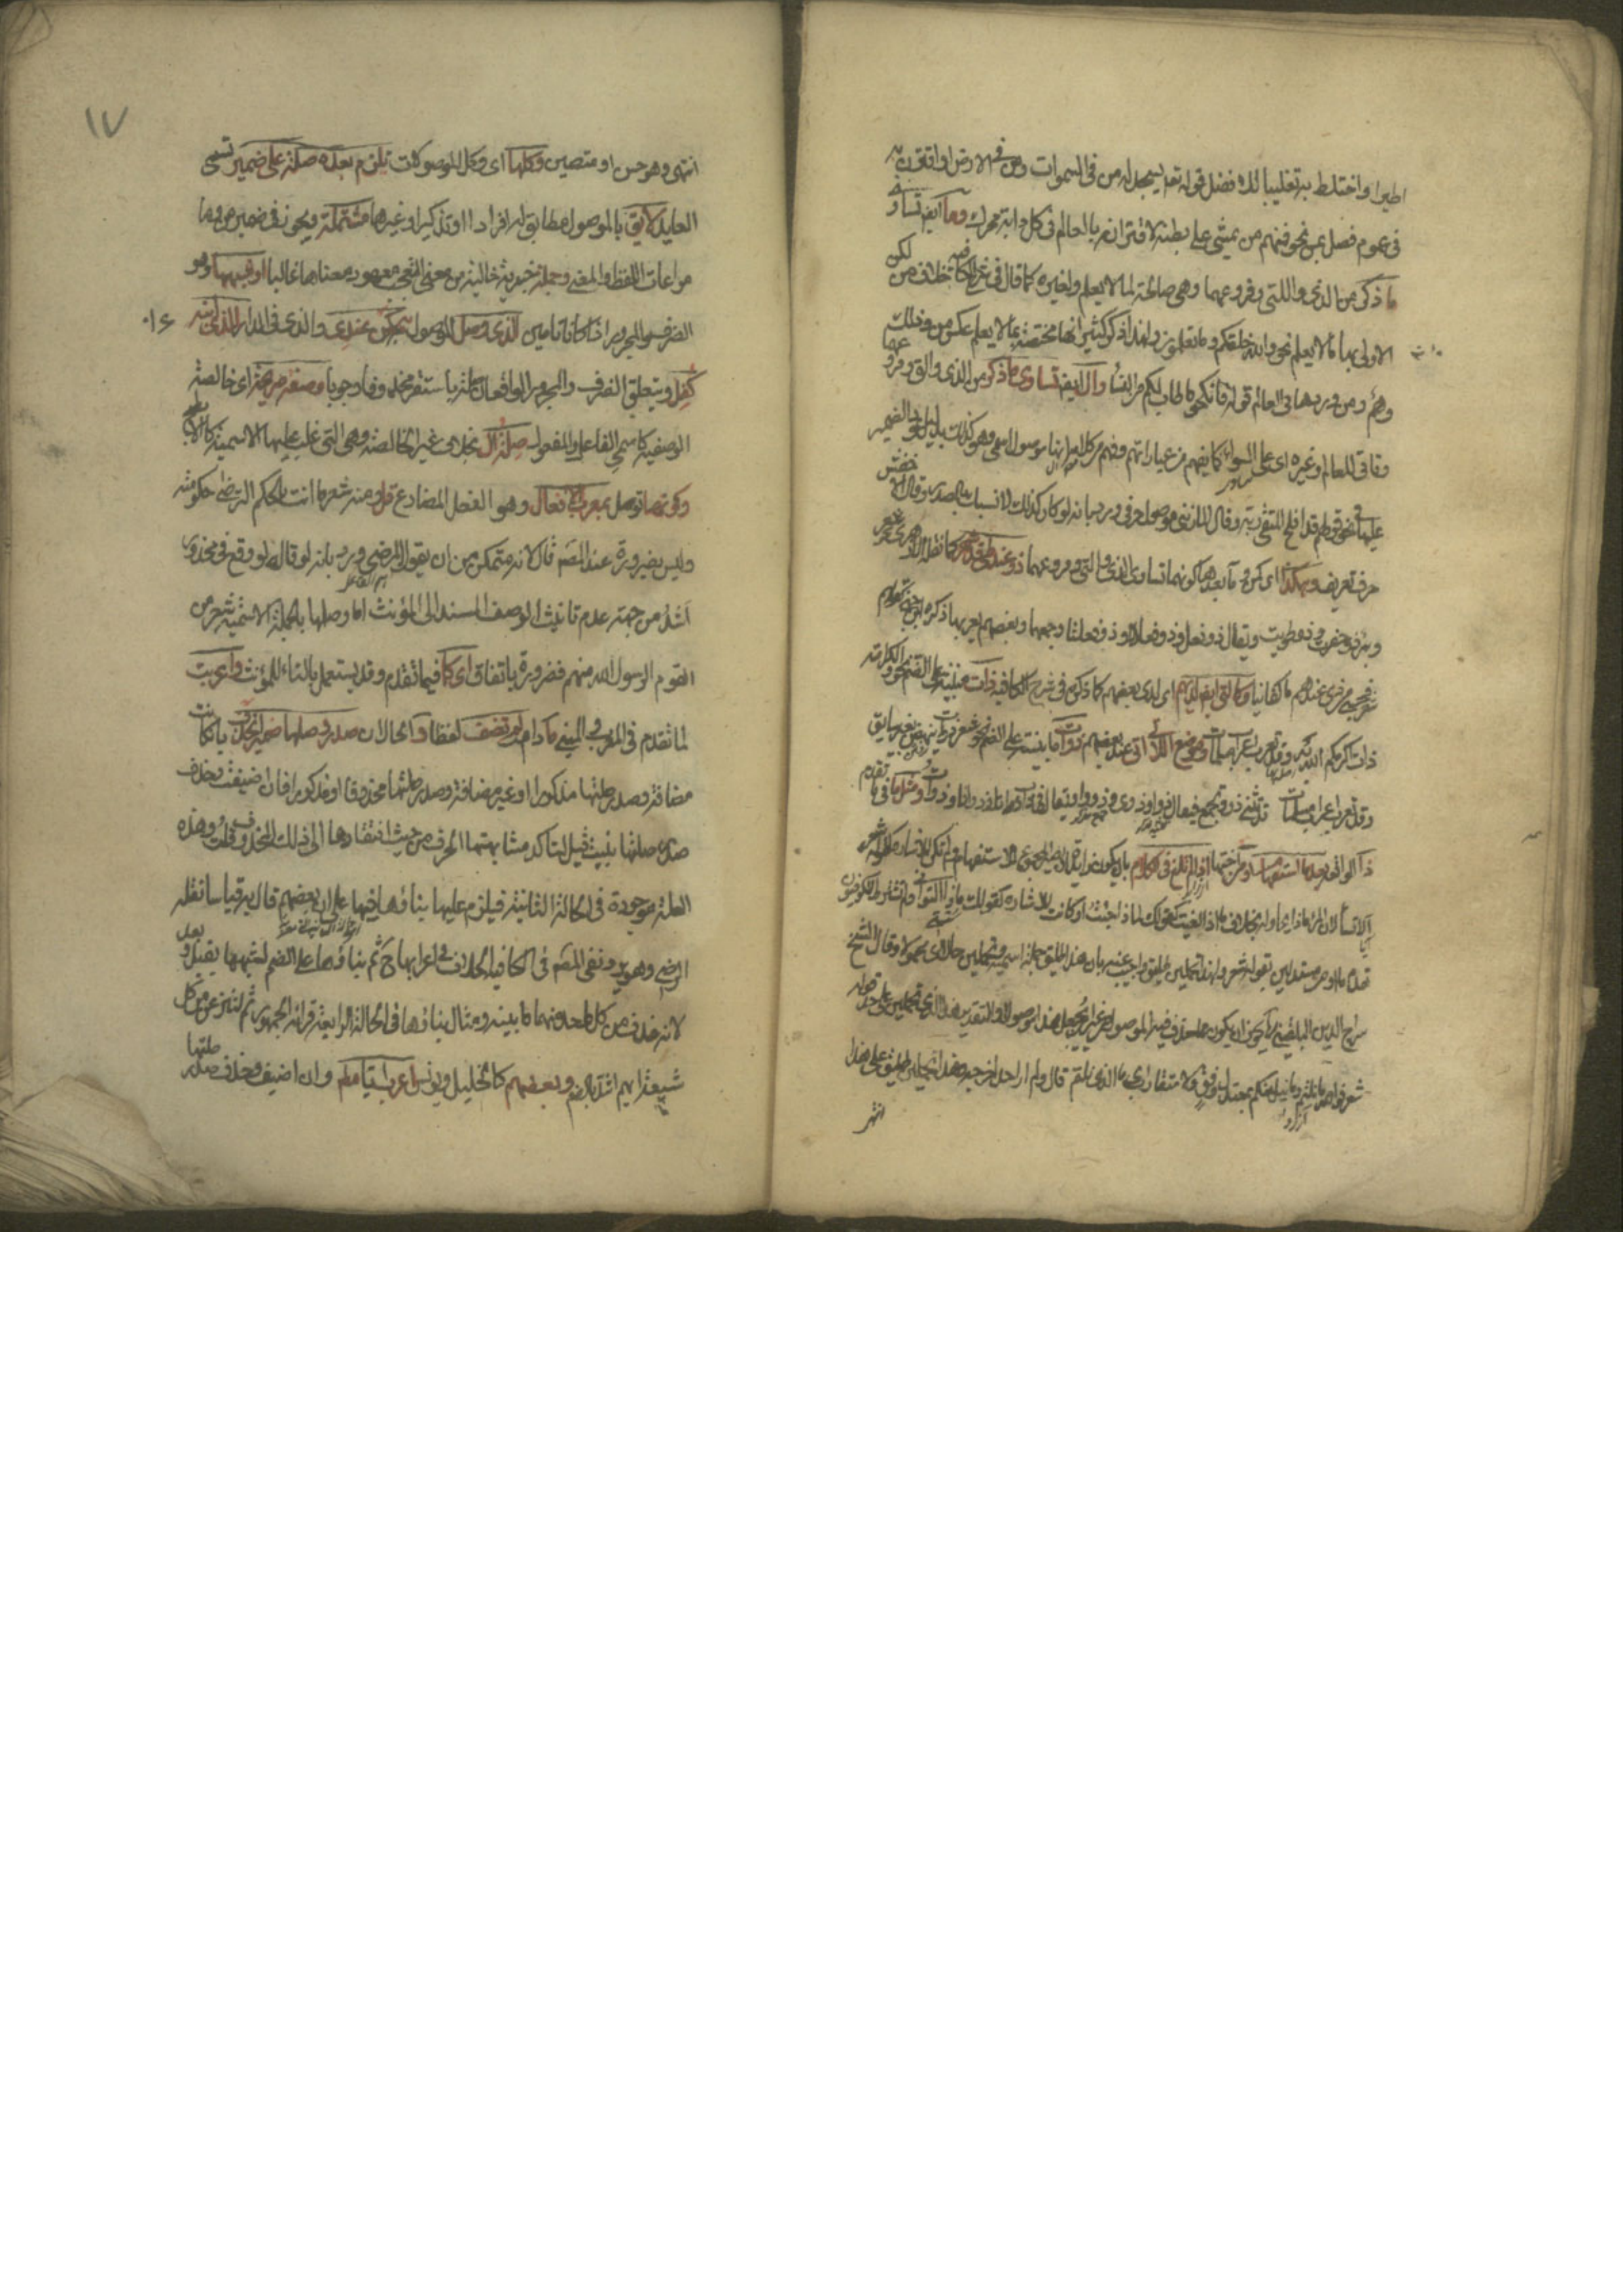 اطير او اختلط به تغليبا لك افضل قوله تعلى يسجد له من في السموات ومن في الارض او اقترن به
في عموم فصل بمن نحو فمنهم من يمشي على بطنه لاقترانه بالعالم في كل دابة وما ايضا تساو
ما ذكر من الذي واللتي وفروعهما وهي صالحة لما لا يعلم ولغيره كما قال في شرح الكافية خلافا لمن لكن
الاولى بها ما لا يعلم نحو والله خلقكم وما تعملون ولهذا ذكر كثير انها مختصة بما لا يعلم عكس من وذلك
وهم ومن ورودها في العالم قوله فانكحوا ما طاب لكم من النساء وال ايضا تساوي ما ذكر من الذي والتي وفروعهما
وتاتي للعالم وغيره اي على السواء كما يفهم من عباراتهم وفهم من كلامه انها موصول اسمي وهو كذلك بدليل عود الضمير
عليها في نحو قولهم قد افلح المتقي ربه وقال المازني موصول حرفي ورد بانه لو كان كذلك لانسبك بالمصدر وقال الاخفش
حرف تعريف وهكذا اي كمن وما بعدها كونها تساوي الذي والتي وفروعهما ذو عند طيئ شهر كما نقله الازهري نحو
وبئري ذو حفرت وذو طويت ويقال ذو فعل وذو فعلا وذو فعلت وجمعها وبعضهم يعربها
فحسبي من ذي عندهم ما كفانيا وكالتي ايضا لديهم اي لدى بعضهم كما ذكره في شرح الكافية ذات مبنية على الضم نحو والكرامة
ذات اكرمكم الله به وقد تعرب اعراب مسلمات وموضع اللاتي اتى عند بعضهم ذوات مبنية على الضم نحو ذوات ينهضن بغير سايق
وقد تعرب اعراب مسلمات وقد تثنى ذو وتجمع فيقال ذوا وذوي وذوو وذوي ويقال في ذات ذواتا وذوات ومثل ما فيما تقدم
ذا الواقعة بعد ما استفهام او من اختها اذا لم تلغ في الكلام بان يكون زائدا او يصير المجموع للاستفهام ولم تكن للاشارة كقوله شعر
الا تسألان المرء ماذا يحاول بخلاف ما اذا الغيت كقولك لماذا جئت او كانت للاشارة كقولك ماذا التواني ولم يشترط الكوفيون
تقدم ما او من مستدلين بقوله شعر وهذا تحملين طليق واجيب عنه بان هذا طليق جملة اسمية وتحملين حال اي محمولا وقال الشيخ
سراج الدين البلقيني يجوز ان يكون مما حذف فيه الموصول من غير ان يجعل هذا موصولا والتقدير هذا الذي تحملين على حد قوله
شعر فوالله ما نلتم وما نيل منكم بمعتدل وفق ولا متقارب اي ما الذي نلتم قال ولم ار احدا خرجه وهذا تحملين طليق على هذا
انتهى
١٧
انتهى وهو حسن او متعين وكلها اي وكل الموصولات تلزم بعده صلة على ضمير تسمى
العايد لايق بالموصول مطابق له افرادا او تذكيرا وغيرهما مشتملة ويجوز في ضمير من وما
مراعاة اللفظ والمعنى وجملة خبرية خالية من معنى التعجب معهود معناها غالبا او شبهها وهو
الظرف والمجرور اذا كانا تامين الذي وصل الموصول به كمن عندي والذي في الدار الذي ابنه
كفل ويتعلق الظرف والمجرور الواقعان صلة باستقر محذوفا وجوبا وصفة صريحة اي خالصة
الوصفية كاسمي الفاعل والمفعول صلة ال بخلاف غير الخالصة وهي التي غلب عليها الاسمية كالابطح
وكونها توصل بمعرب الافعال وهو الفعل المضارع قل ومنه شعر ما انت بالحكم الترضى حكومته
وليس بضرورة عند المصنف قال لانه متمكن من ان يقول المرضي ورد بانه لو قال لوقع في محذور
اشد من جهة عدم تانيث الوصف المسند الى المؤنث اما وصلها بالجملة الاسمية نحو من
القوم الرسول الله منهم فضرورة باتفاق اي كما فيما تقدم وقد يستعمل بالتاء للمؤنث واعربت
لما تقدم في المعرب والمبني ما دام لم تضف لفظا والحال ان صدر وصلها ضمير انحذف بان كانت
مضافة وصدر صلتها مذكورا او غير مضافة وصدر صلتها محذوفا او مذكورا فان اضيفت وحذف
صدر صلتها بنيت قيل لتاكد مشابهتها الحرف من حيث افتقارها الى ذلك المحذوف قلت وهذه
العلة موجودة في الحالة الثانية فيلزم عليها بناؤها فيها على ان بعضهم قال به قياسا نقله
الرضي وهو يرد نفي المصنف في الكافية الخلاف في اعرابها ح ثم بناؤها على الضم لشبهها بقبل وبعد
لانه حذف من كل واحد منهما ما يبينه ومثال بنائها في الحالة الرابعة قراءة الجمهور ثم لننزعن من كل
شيعة ايهم اشد بالضم وبعضهم كالخليل ويونس اعرب ايا مطلقا وان اضيف وحذف صدر صلتها